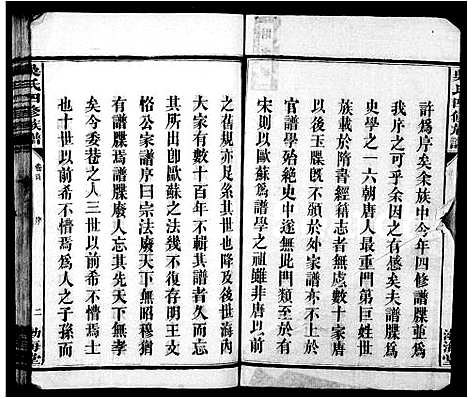 許爲序矣余族中今年四修譜牒並爲
我斥之可乎余因之有感矣夫譜牒爲
史學之一六朝唐人最重門第巨姓世
族載於隋書經籍志者無慮數十家唐
後玉牒既不頒於外家譜亦不上於
官譜學殆絕史中遂無此門類至於有
宋則以歐蘇爲譜學之祖雖非唐以前
之舊規亦足系其世也降及後世海內
大家有數十百年不輯其譜者矣問
其所出即歐蘇之法幾不復存昭穆猶
恪公家譜序曰宗法廢天下忘其祖
矣譜牒廢人忘其先天下無孝
矣今委巷之人三世以前者不懵焉
也十世以前者不懵焉爲人之子孫而
吳氏四修族譜
卷首
序
二
渤海堂